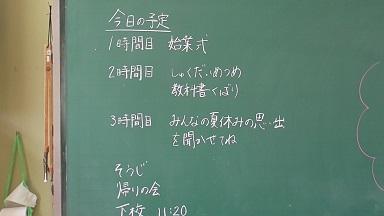 今日の予定
1時間目 始業式
2時間目 しゅくだいあつめ
教科書くばり
3時間目 みんなの夏休みの思い出
を聞かせてね
そうじ
帰りの会
下校 11:20